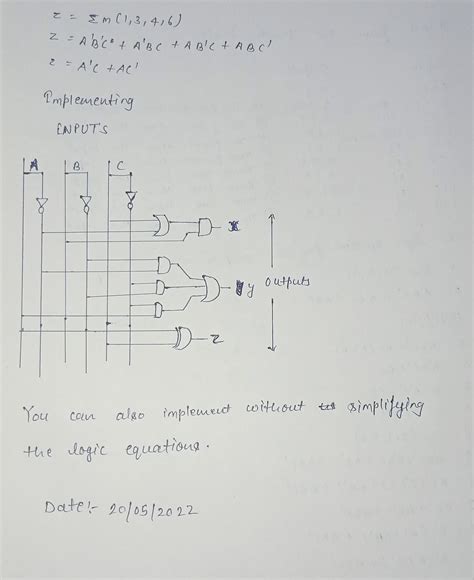 z = Σm(1,3,4,6)
z = A'B'C + A'BC + AB'C + ABC'
z = A'C + AC'
Implementing
INPUTS
A B C
x
y outputs
z
You can also implement without simplifying
the logic equations.
Date:- 20/05/2022